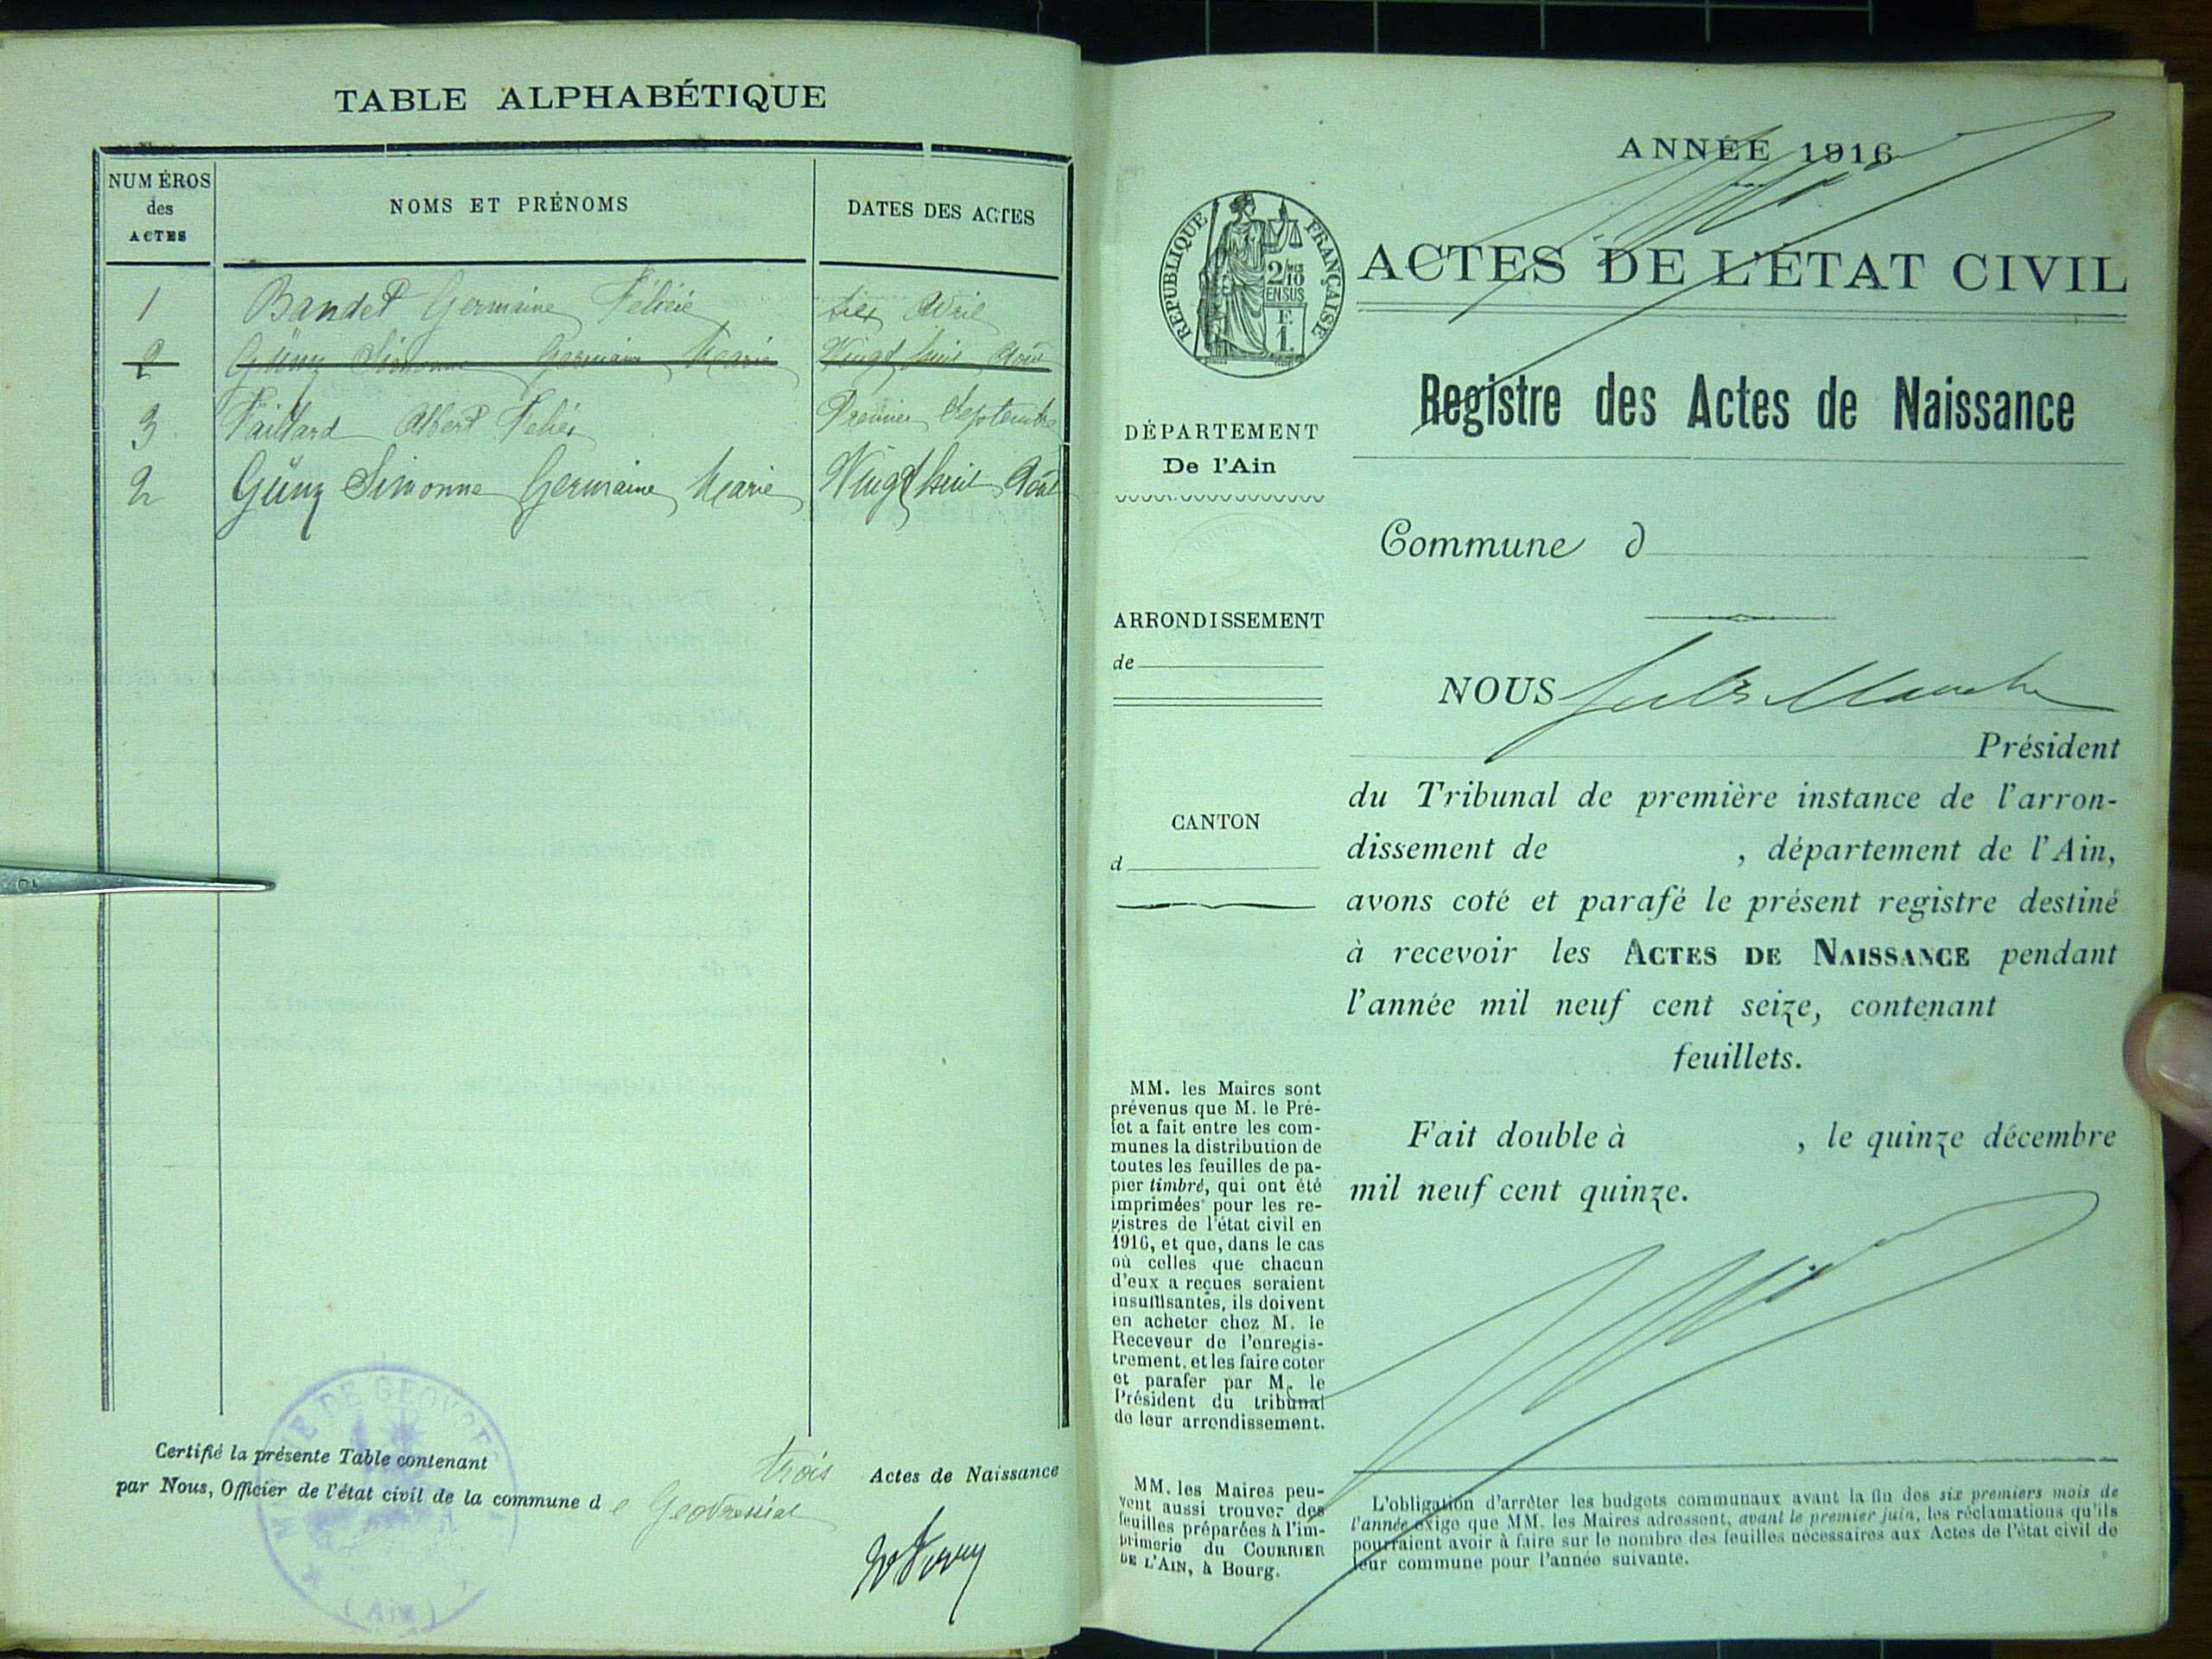 TABLE ALPHABÉTIQUE
NUMÉROS
des
ACTES
NOMS ET PRÉNOMS
DATES DES ACTES
1 Bandet Germaine Félicie six Avril
2 Günz Simonne Germaine Marie Vingt huit Août
3 Vaillard Albert Félix Premier Septembre
2 Günz Simonne Germaine Marie Vingt huit Août
Certifié la présente Table contenant trois Actes de Naissance
par Nous, Officier de l'état civil de la commune de Geovressiat
MAIRIE DE GEOVRES
(AIN)
ANNÉE 1916
RÉPUBLIQUE FRANÇAISE
2/10
EN SUS
F.
1.
ACTES DE L'ÉTAT CIVIL
Registre des Actes de Naissance
DÉPARTEMENT
De l'Ain
Commune d
ARRONDISSEMENT
de
NOUS Jules
Président
du Tribunal de première instance de l'arron-
dissement de , département de l'Ain,
avons coté et parafé le présent registre destiné
à recevoir les ACTES DE NAISSANCE pendant
l'année mil neuf cent seize, contenant
feuillets.
CANTON
d
Fait double à , le quinze décembre
mil neuf cent quinze.
MM. les Maires sont
prévenus que M. le Pré-
fet a fait entre les com-
munes la distribution de
toutes les feuilles de pa-
pier timbré, qui ont été
imprimées pour les re-
gistres de l'état civil en
1916, et que, dans le cas
où celles que chacun
d'eux a reçues seraient
insuffisantes, ils doivent
en acheter chez M. le
Receveur de l'enregis-
trement, et les faire coter
et parafer par M. le
Président du tribunal
de leur arrondissement.
MM. les Maires peu-
vent aussi trouver des
feuilles préparées à l'im-
primerie du COURRIER
DE L'AIN, à Bourg.
L'obligation d'arrêter les budgets communaux avant la fin des six premiers mois de
l'année exige que MM. les Maires adressent, avant le premier juin, les réclamations qu'ils
pourraient avoir à faire sur le nombre des feuilles nécessaires aux Actes de l'état civil de
leur commune pour l'année suivante.